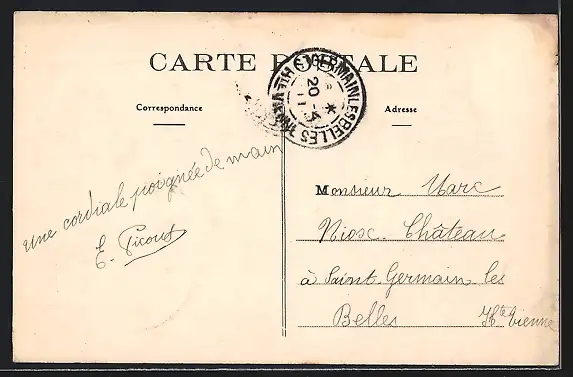 CARTE POSTALE
Correspondance
Adresse
ST GERMAIN LES BELLES
20 -4
11
une cordiale poignée de main
E. Picout
Monsieur Marc
Niosc. Château
à Saint Germain les
Belles Hte Vienne